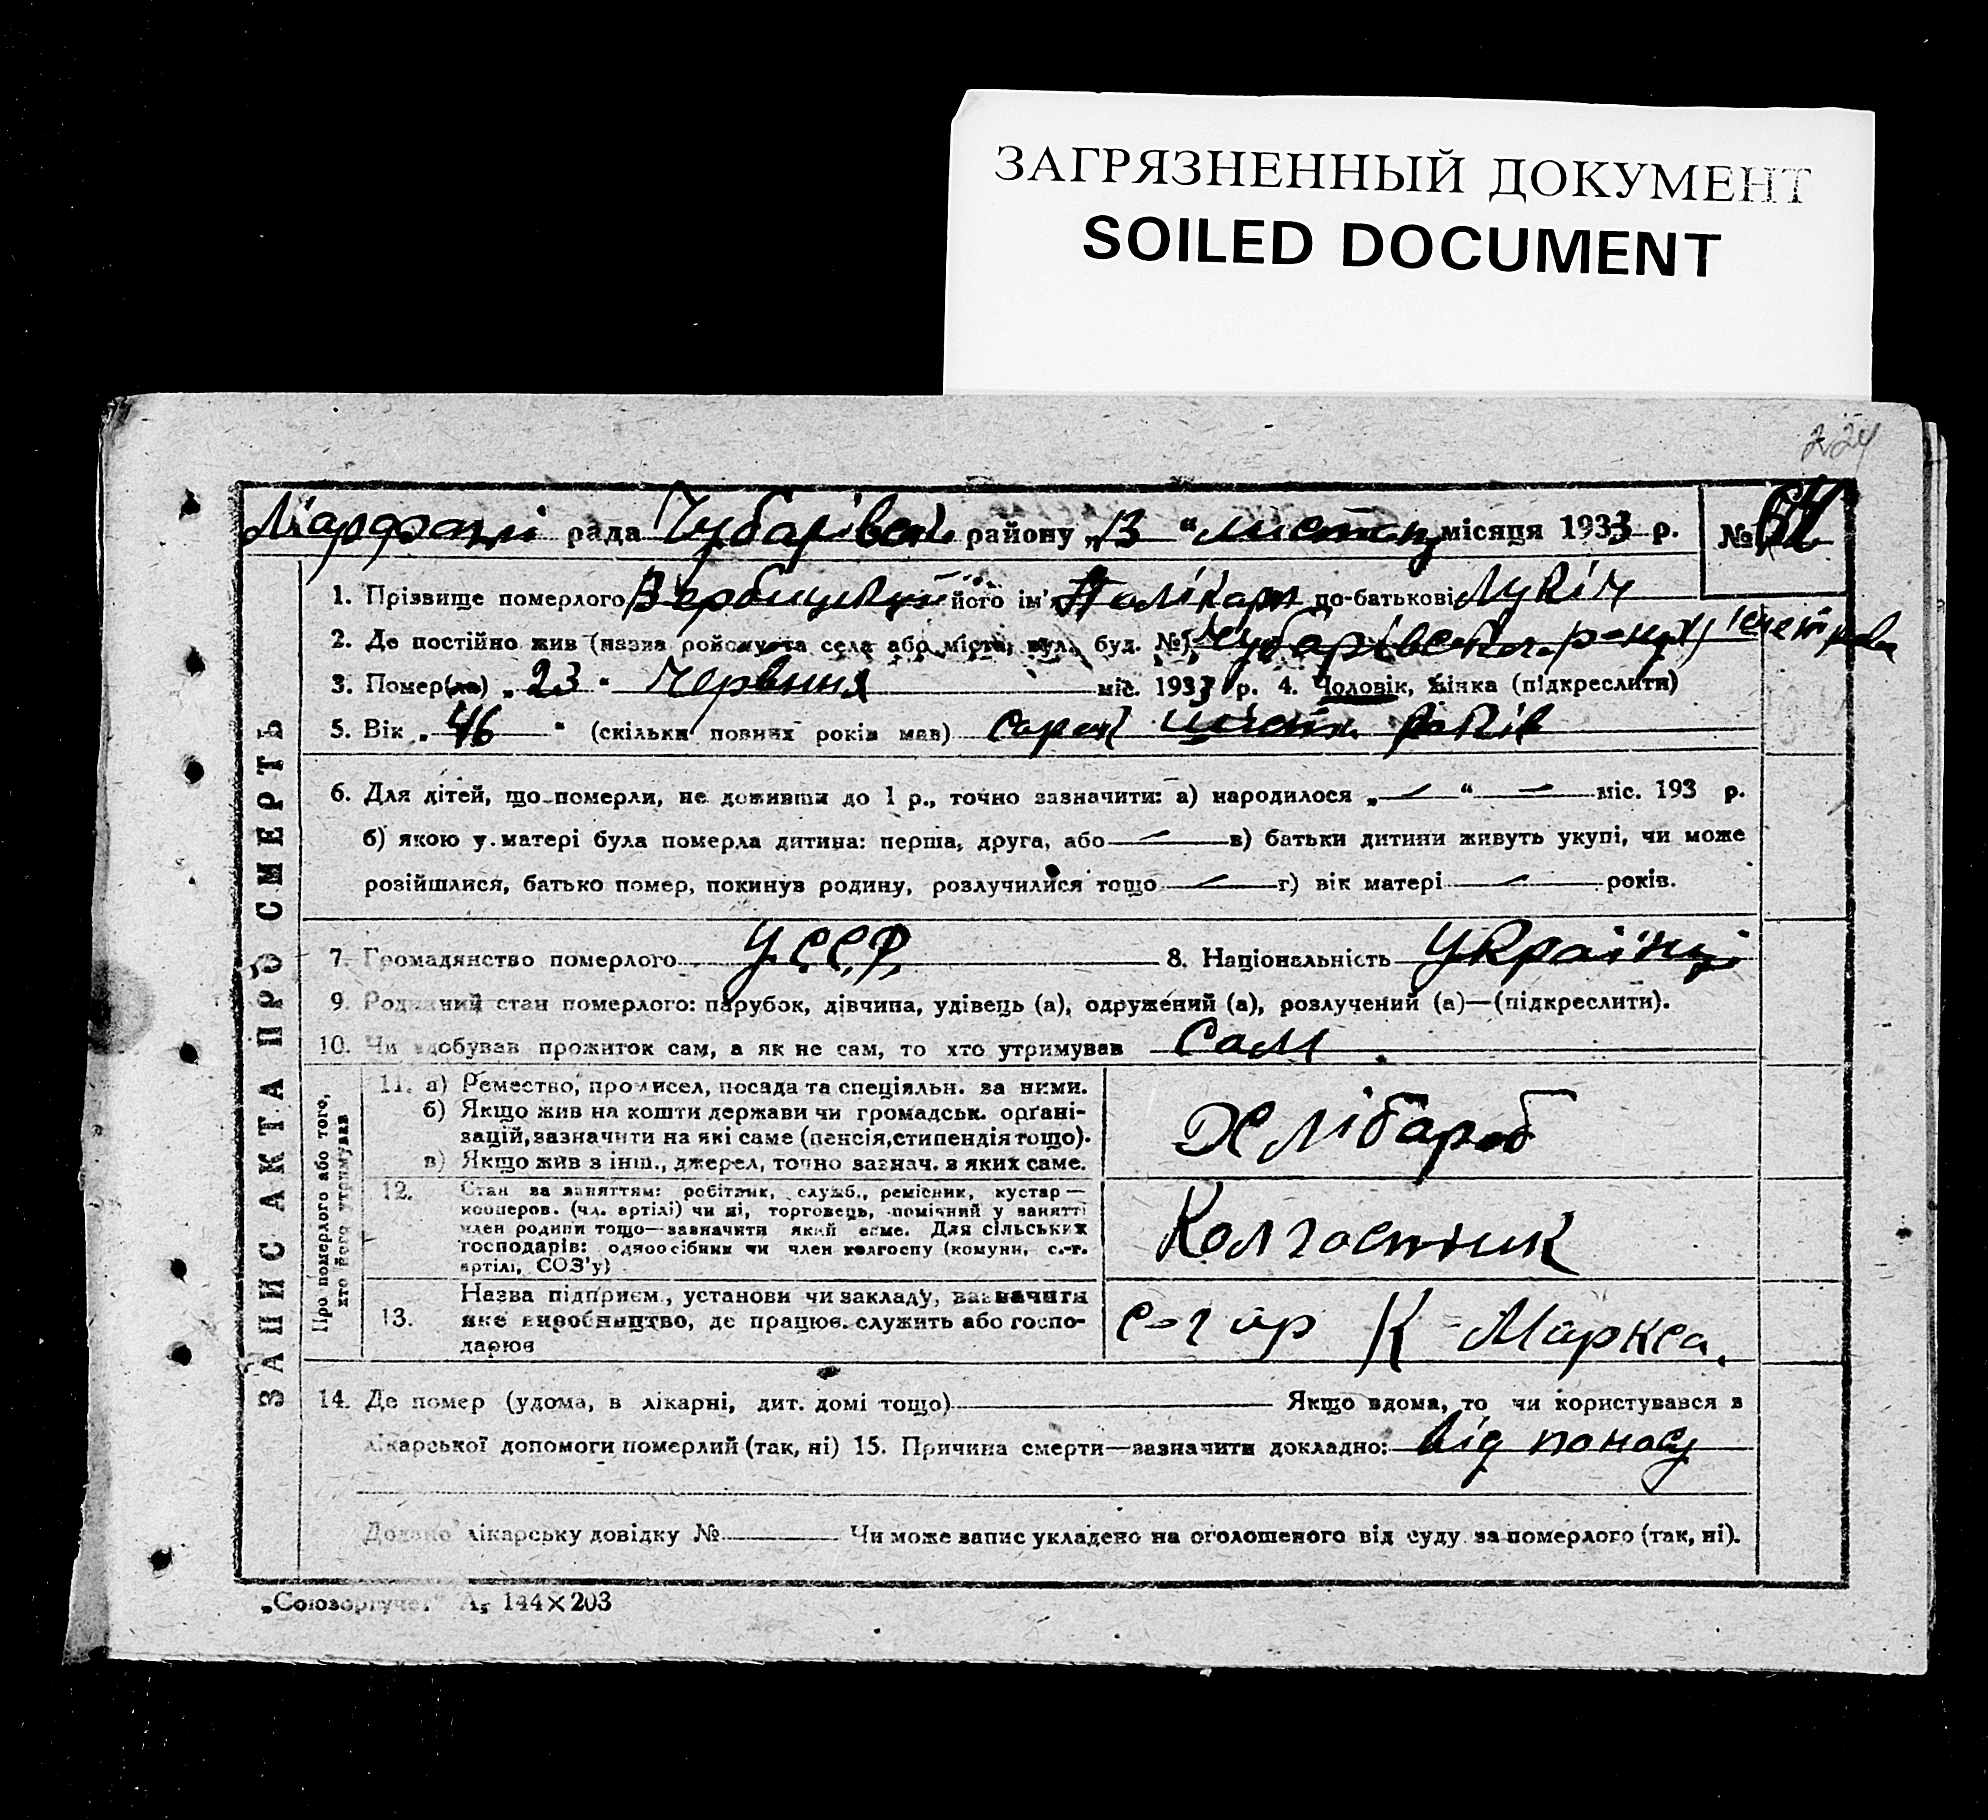 ЗАГРЯЗНЕННЫЙ ДОКУМЕНТ
SOILED DOCUMENT
224
рада Чубарівськ району „13 “ листоп місяця 1933 р. №
1. Прізвище померлого Вербицький його ім'я Полікарп по-батькові Лукіч
2. Де постійно жив (назва району та села або міста, вул. буд. №) Чубарівського р-ну
3. Помер(ла) „ 23 “ Червння міс. 1933 р. 4. Чоловік, жінка (підкреслити)
5. Вік „ 46 “ (скільки повних років мав) сорок шість років
6. Для дітей, що померли, не доживши до 1 р., точно зазначити: а) народилося „ — “ — міс. 193 р.
б) якою у матері була померла дитина: перша, друга, або — в) батьки дитини живуть укупі, чи може
розійшлися, батько помер, покинув родину, розлучилися тощо — г) вік матері — років.
7. Громадянство померлого У.С.С.Р. 8. Національність Українц
9. Родинний стан померлого: парубок, дівчина, удівець (а), одружений (а), розлучений (а)—(підкреслити).
10. Чи здобував прожиток сам, а як не сам, то хто утримував Сам
ЗАПИС АКТА ПРО СМЕРТЬ
Про померлого або того, хто його утримував
11. а) Ремество, промисел, посада та спеціяльн. за ними.
б) Якщо жив на кошти держави чи громадськ. орґані-
зацій, зазначити на які саме (пенсія, стипендія тощо).
в) Якщо жив з інш., джерел, точно зазнач. з яких саме.
Хлібороб
12. Стан за заняттям: робітник, служб., ремісник, кустар —
кооперов. (чл. артілі) чи ні, торговець, помічний у занятті
член родини тощо—зазначити який саме. Для сільських
господарів: одноосібник чи член колгоспу (комуни, с.-г.
артілі, СОЗ'у)
Колгостник
13. Назва підприєм., установи чи закладу, зазначити
яке виробництво, де працюв. служить або госпо-
дарюв
с-г ар К-Маркса.
14. Де помер (удома, в лікарні, дит. домі тощо) Якщо вдома, то чи користувався з
лікарської допомоги померлий (так, ні) 15. Причина смерти—зазначити докладно: від поносу
Додано лікарську довідку № Чи може запис укладено на оголошеного від суду за померлого (так, ні).
„Союзоргучет“ А5 144×203